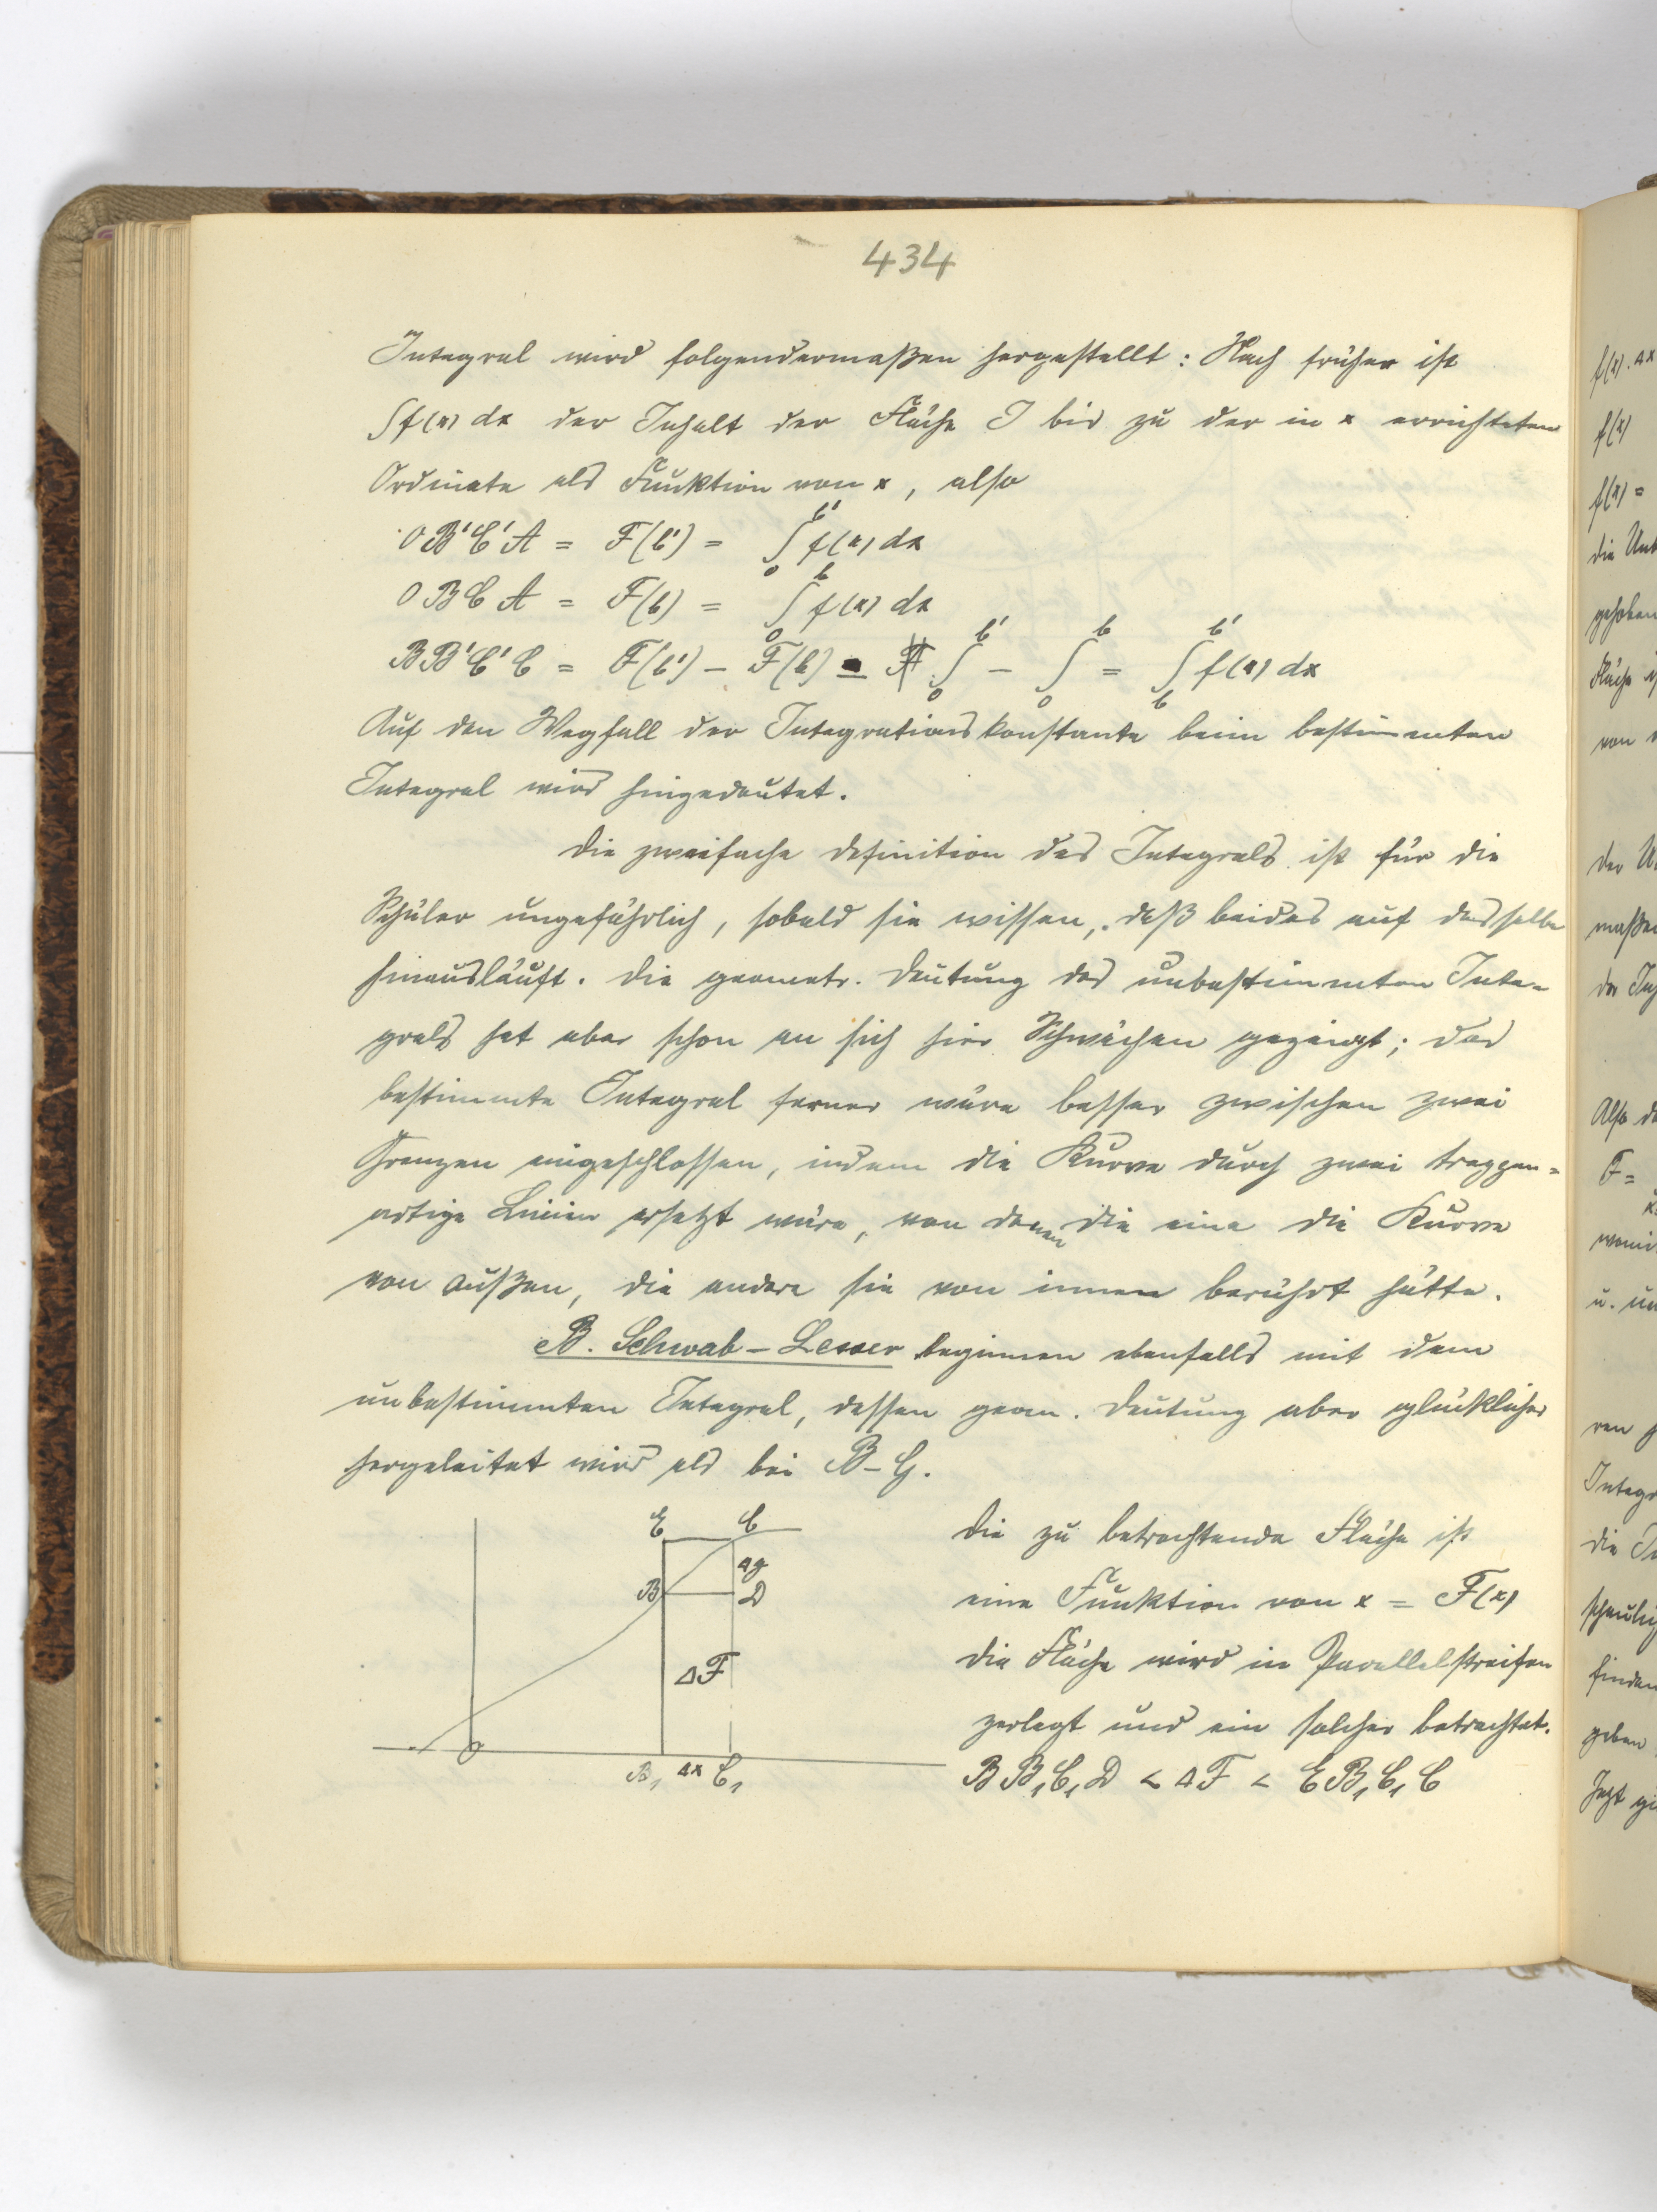 434
Integral wird folgendermaßen hergestellt: Nach früher ist
∫f(x) dx der Inhalt der Fläche J bis zu der in x errichteten
Ordinate als Funktion von x, also
OB'C'A = F(b') = ∫₀^b' f(x) dx
OBCA = F(b) = ∫₀^b f(x) dx
BB'C'C = F(b') – F(b) = ∫₀^b' – ∫₀^b = ∫_b^b' f(x) dx
Auf den Wegfall der Integrationskonstante beim bestimmten
Integral wird hingedeutet.
Die zweifache Definition des Integrals ist für die
Schüler ungefährlich, sobald sie wissen, daß beides auf dasselbe
hinausläuft. Die geometr. Deutung des unbestimmten Inte-
grals hat aber schon an sich hier Schwächen gezeigt; das
bestimmte Integral ferner wäre besser zwischen zwei
Grenzen eingeschlossen, indem die Kurve durch zwei treppen-
artige Linien ersetzt wäre, von denen die eine die Kurve
von außen, die andere sie von innen berührt hätte.
B. Schwab–Lesser beginnen ebenfalls mit dem
unbestimmten Integral, dessen geom. Deutung aber glücklicher
hergeleitet wird als bei B–G.
E C
Δy
B D
ΔF
O
B₁ Δx C₁
Die zu betrachtende Fläche ist
eine Funktion von x = F(x)
Die Fläche wird in Parallelstreifen
zerlegt und ein solcher betrachtet.
BB₁C₁D < ΔF < EB₁C₁C
f(x).Δx
f(x)
f(x) =
die
Fläche
von
der
maßen
der
Also
F=
u.
Integr
die
finden
geben
Jetzt